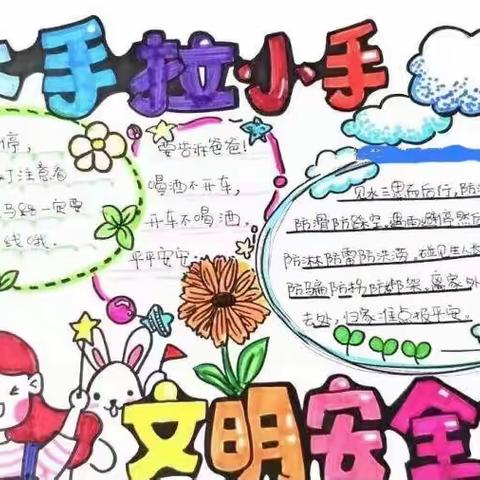 大手拉小手
停,
灯注意看
马路一定要
线哦.
要告诉爸爸!
喝酒不开车,
开车不喝酒.
平平安安
见水三思而后行,防
防滑防踩空,遇雨
防淋防雷防洪涝,碰见生人
防骗防拐防绑架,离家外
去处,归家准点报平安.
文明安全